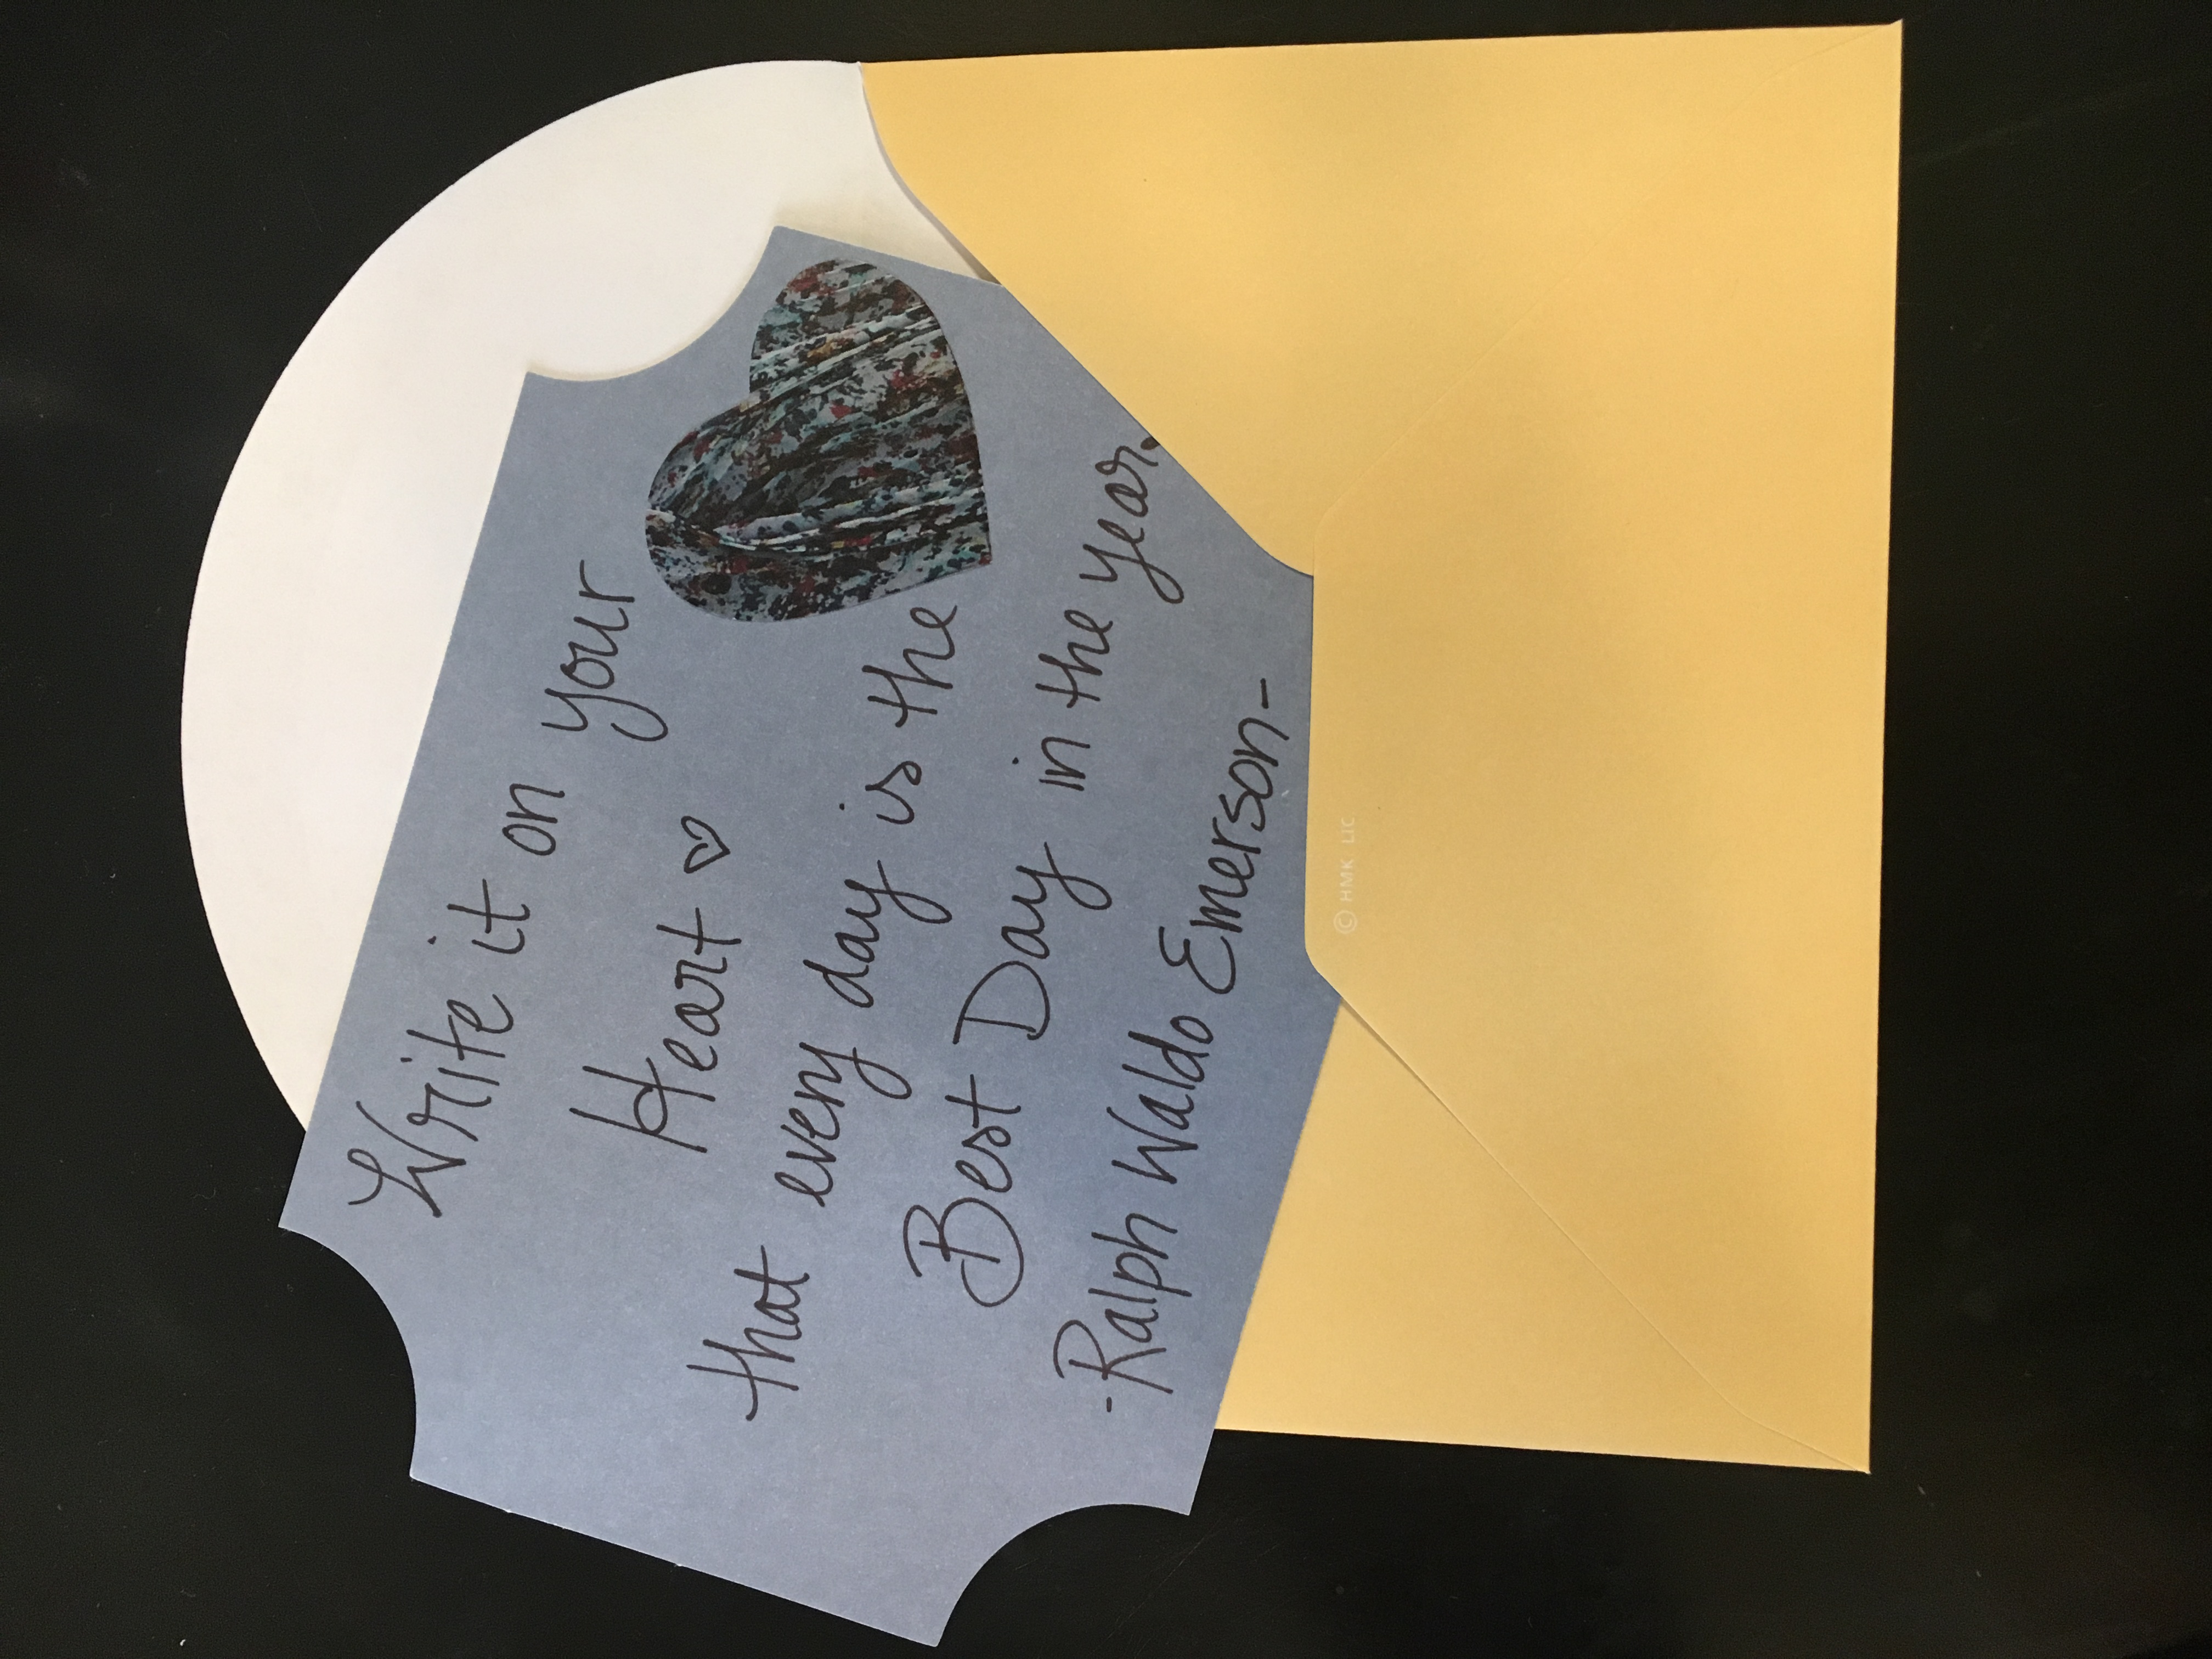 Write it on your
Heart ♡
that every day is the
Best Day in the year.
-Ralph Waldo Emerson-
© HMK LIC